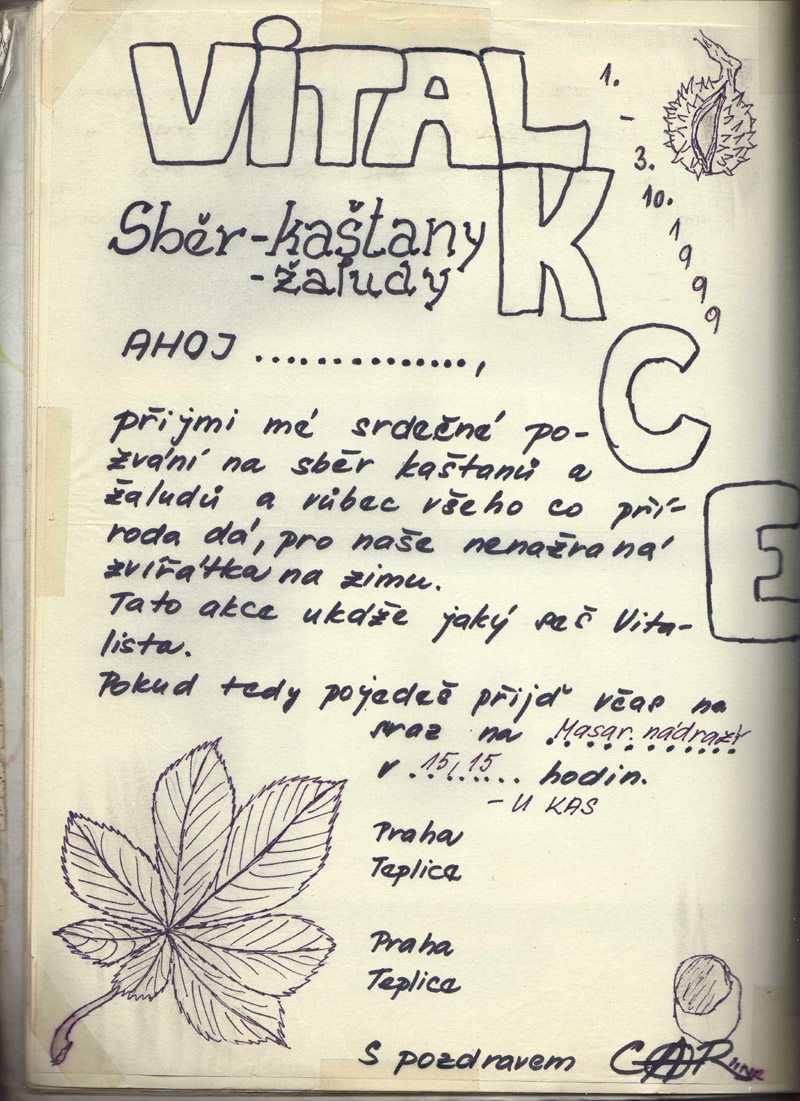 VITAL
K
C
E
1.
-
3.
10.
1999
Sběr-kaštany
-žaludy
AHOJ ..............,
přijmi mé srdečné po-
zvání na sběr kaštanů a
žaludů a vůbec všeho co pří-
roda dá, pro naše nenažraná
zvířátka na zimu.
Tato akce ukáže jaký seš Vita-
lista.
Pokud tedy pojedeš přijď včas na
sraz na Masar. nádraží
v 15,15 hodin.
- U KAS
Praha
Teplice
Praha
Teplice
S pozdravem